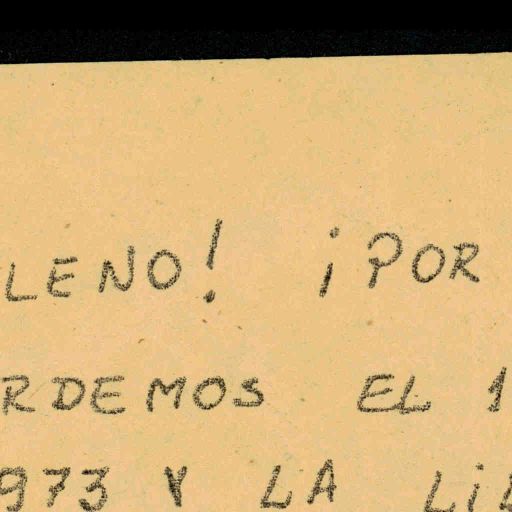 LENO! ¡POR
RDEMOS EL 1
973 Y LA LiL